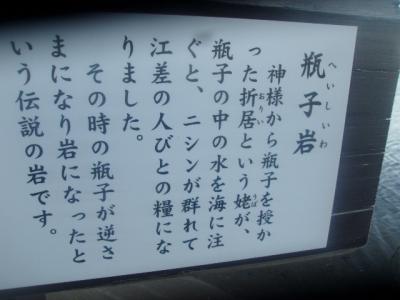 へいしいわ
瓶子岩
神様から瓶子を授か
った折居という姥が、
おりい
うば
瓶子の中の水を海に注
ぐと、ニシンが群れて
江差の人びとの糧にな
りました。
その時の瓶子が逆さ
まになり岩になったと
いう伝説の岩です。